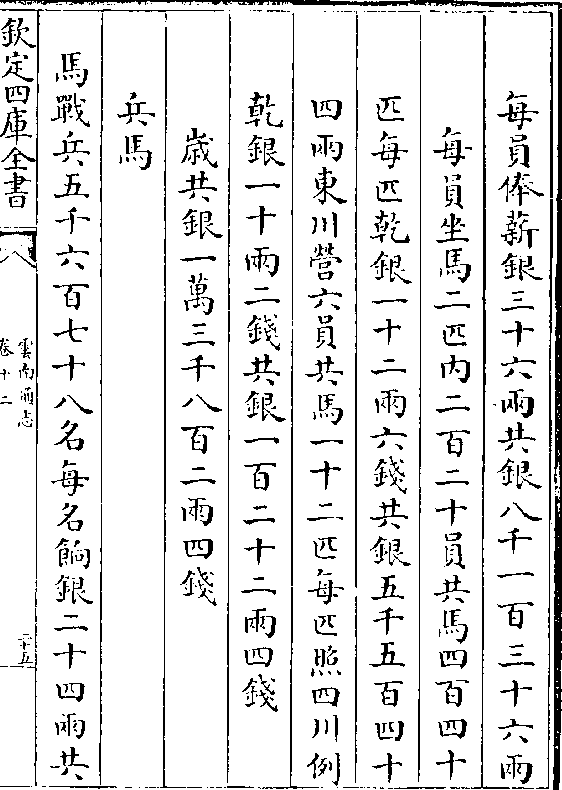 每員俸薪銀三十六兩共銀八千一百三十六兩
每員坐馬二匹内二百二十員共馬四百四十
匹每匹乾銀一十二兩六錢共銀五千五百四十
四兩東川營六員共馬一十二匹每匹照四川例
乾銀一十兩二錢共銀一百二十二兩四錢
歳共銀一萬三千八百二兩四錢
兵馬
馬戰兵五千六百七十八名每名餉銀二十四兩共
欽定四庫全書
雲南通志
卷十二
二十五